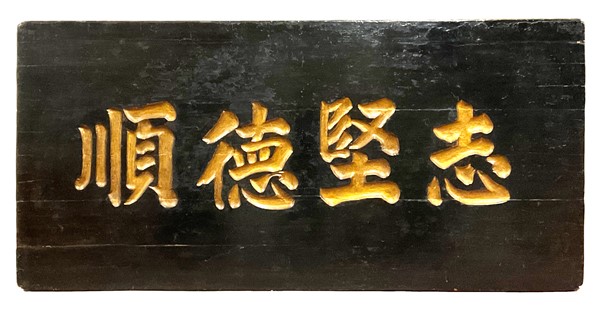 志堅德順